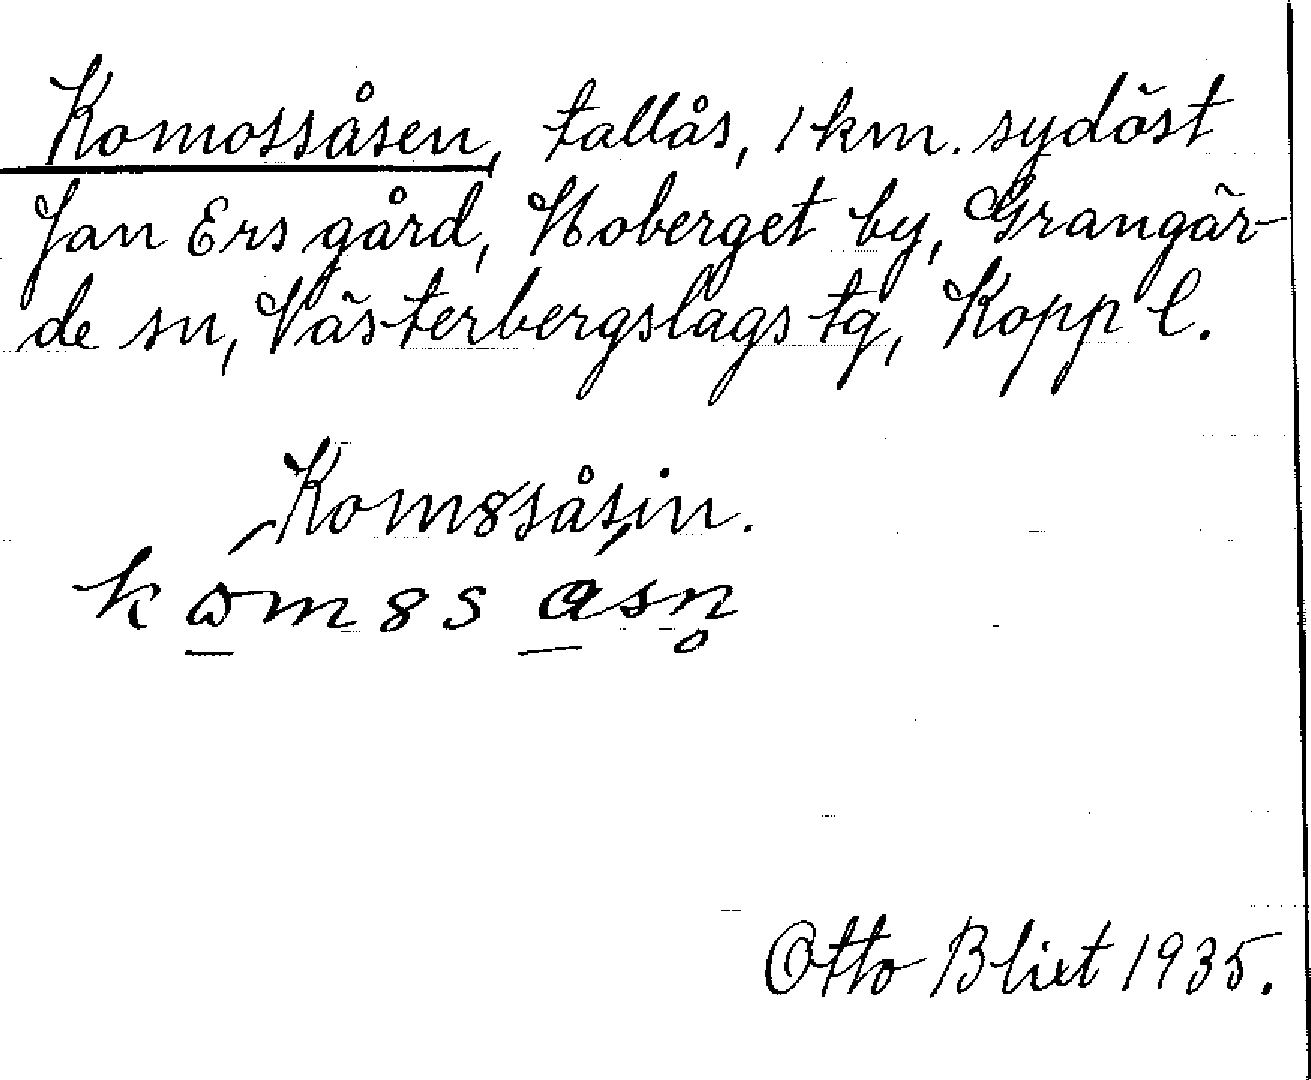 Komossåsen, tallås, 1 km. sydöst
Jan Ers gård, Hoberget by, Grangär-
de sn, Västerbergslags tg, Kopp l.
Kom8såsin.
kωm8s ɑsn̥
Otto Blixt 1935.